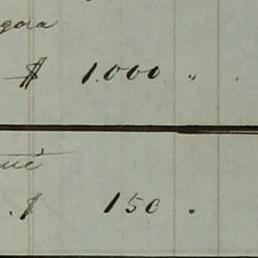 gora
$ 1.000 "
$ 150 .